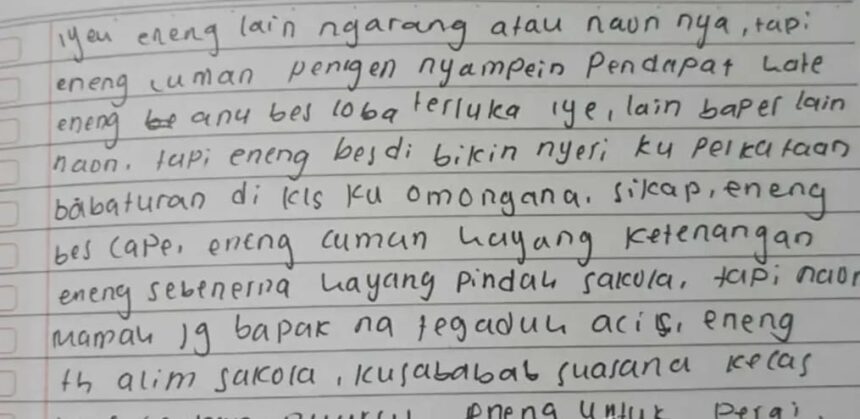 iyeu eneng lain ngarang atau naon nya, tapi
eneng cuman pengen nyampein Pendapat hate
eneng anu bes loba terluka iye, lain baper lain
naon. tapi eneng besdi bikin nyeri ku perkataan
babaturan di kls ku omongana. sikap, eneng
bes cape, eneng cuman hayang ketenangan
eneng sebenerna hayang pindah sakola, tapi naon
mamah jg bapak na tegaduh acis, eneng
th alim sakola, kusababab suasana kelas
eneng untuk pergi